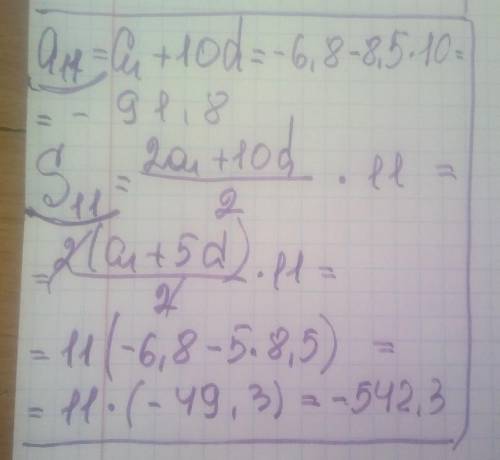 a₁₁ = a₁ + 10d = -6,8 - 8,5 · 10 =
= - 91,8
S₁₁ = (2a₁ + 10d)/2 · 11 =
= 2(a₁ + 5d)/2 · 11 =
= 11(-6,8 - 5·8,5) =
= 11·(-49,3) = -542,3